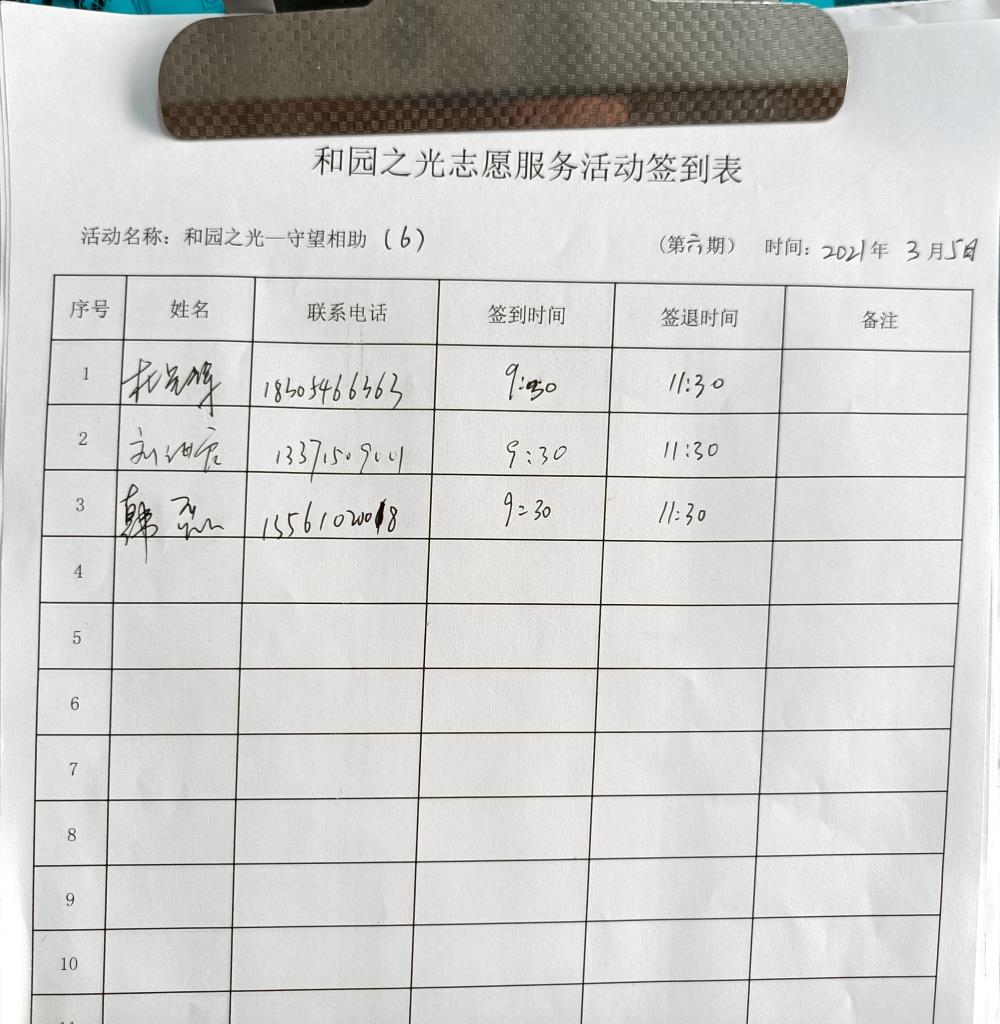 和园之光志愿服务活动签到表
活动名称：和园之光—守望相助（6） （第六期） 时间：2021年 3月5日
序号 姓名 联系电话 签到时间 签退时间 备注
1 18305466363 9:30 11:30
2 刘 13371509001 9:30 11:30
3 韩磊 13561020018 9:30 11:30
4
5
6
7
8
9
10